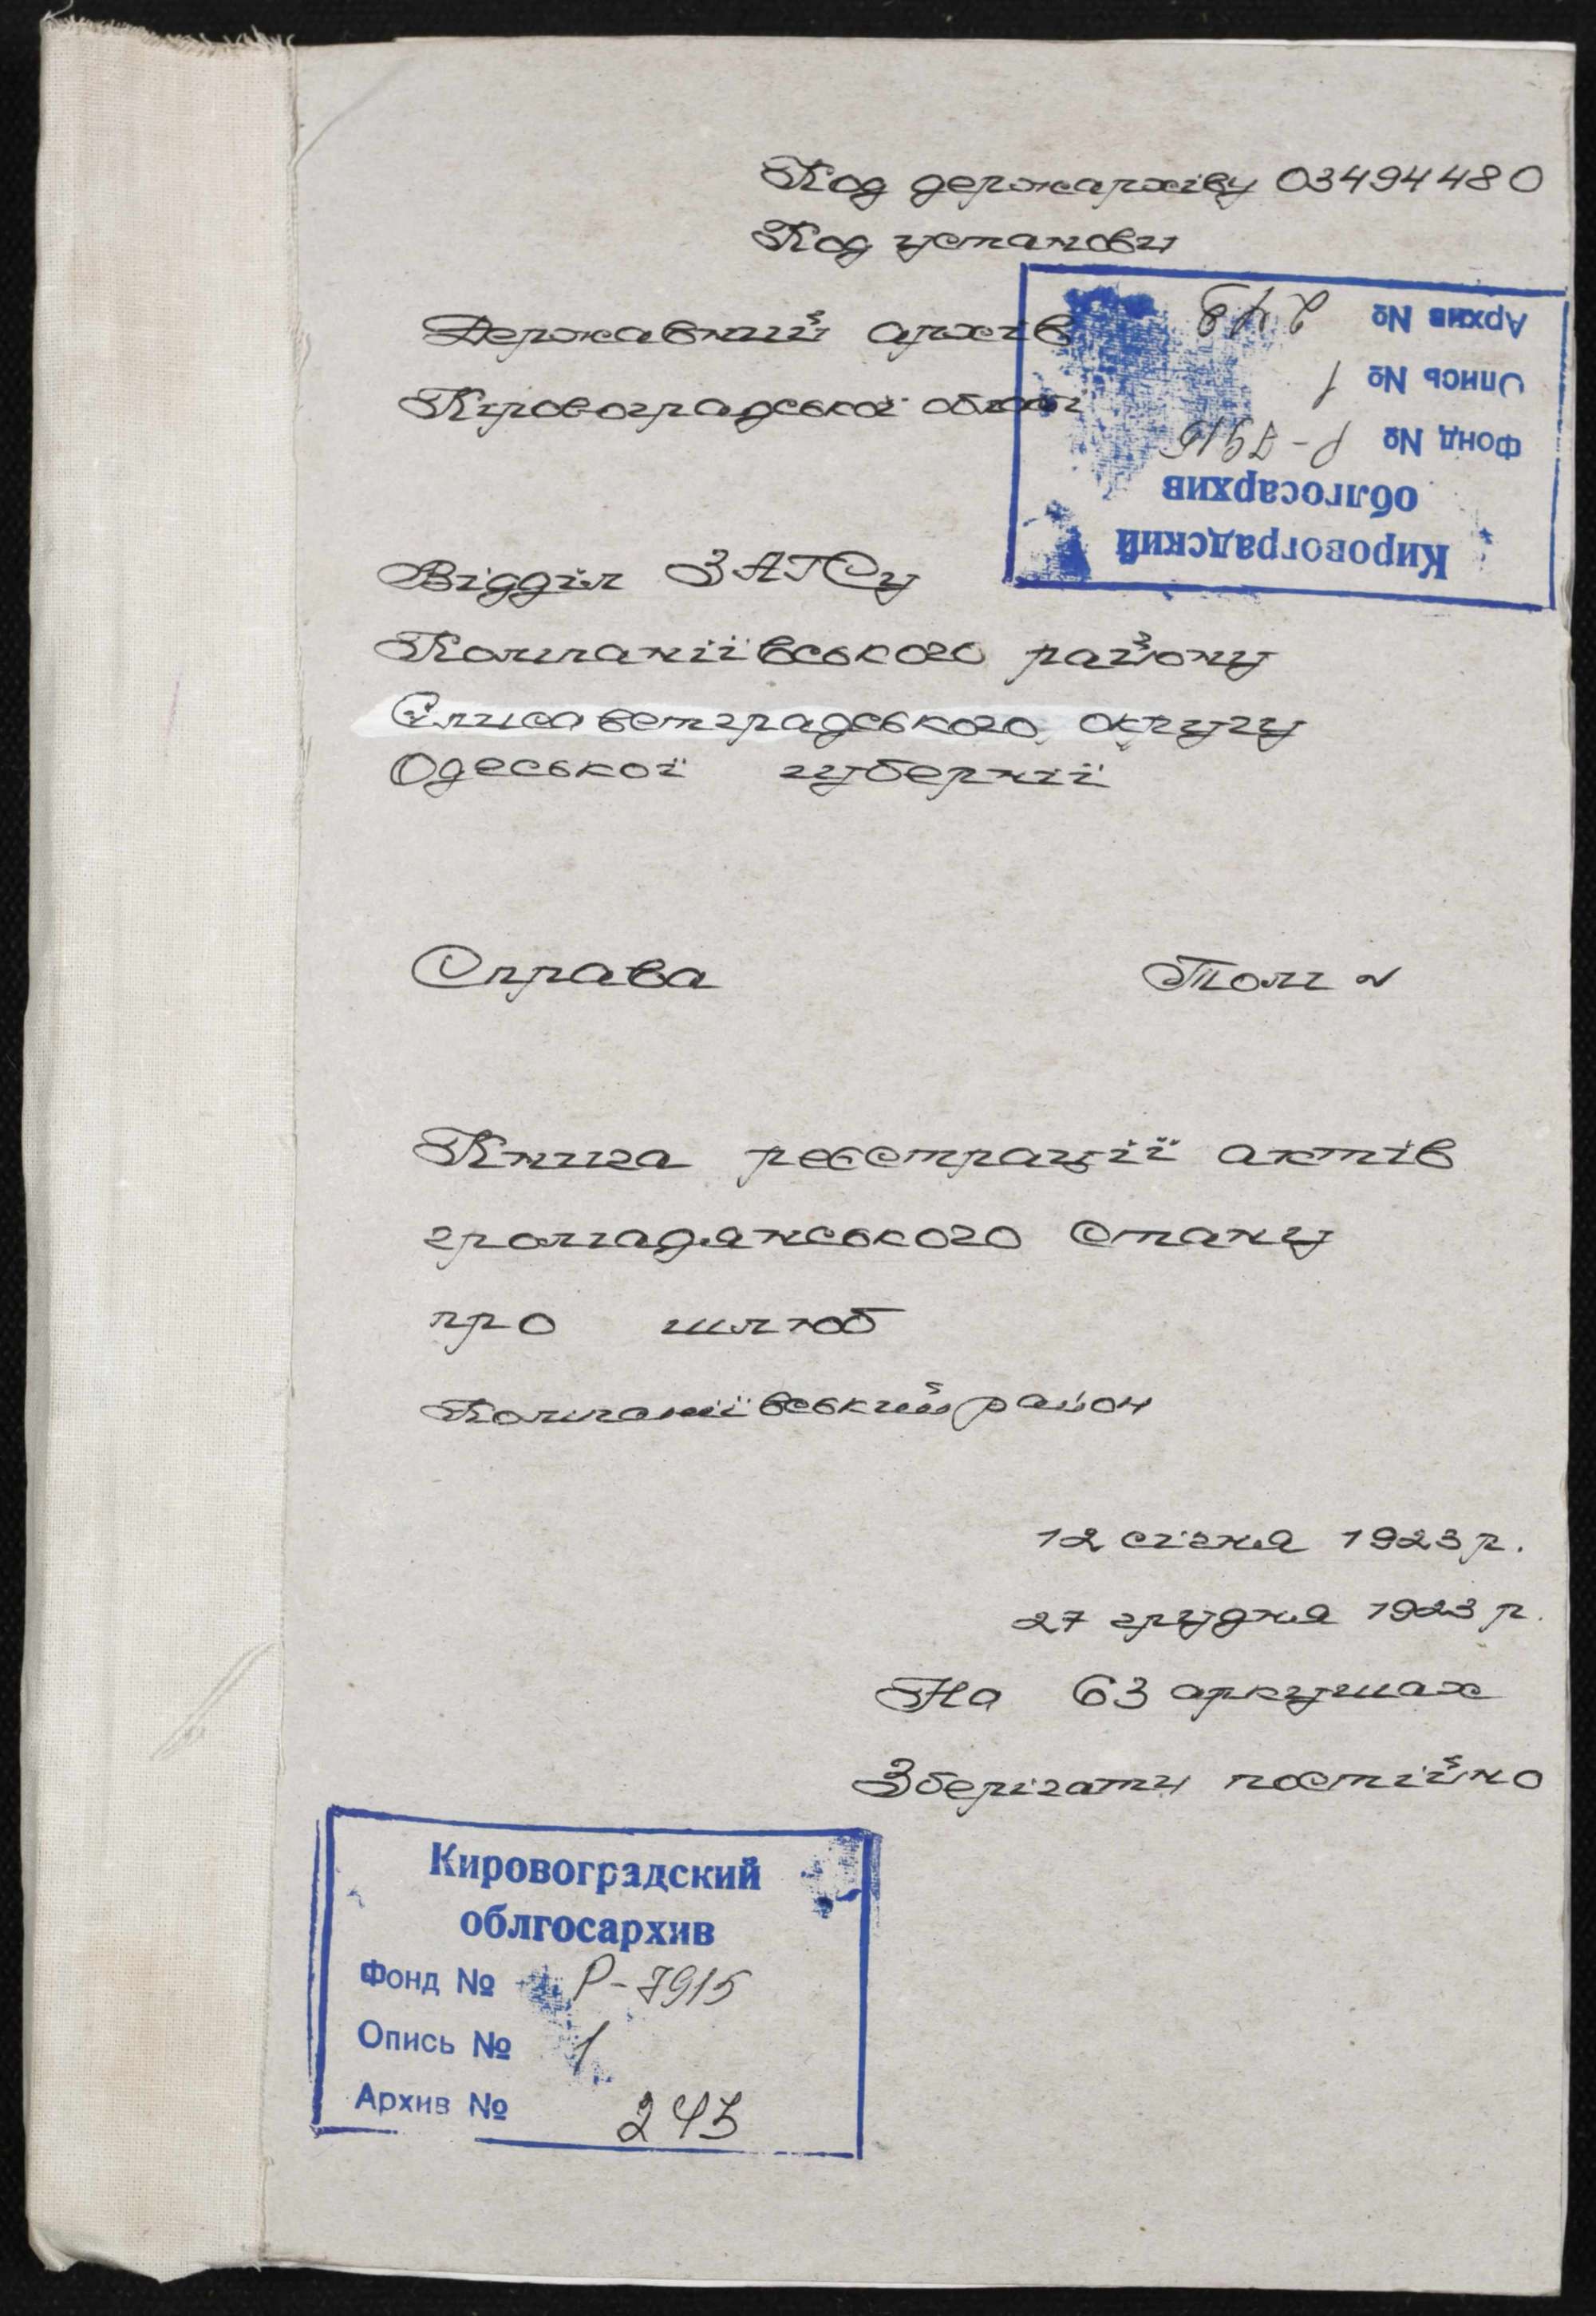 Код держархіву 03494480
Код установи
Державний архів
Кіровоградської області
Кировоградский
облгосархив
Фонд № Р-7915
Опись № 1
Архив №
Відділ ЗАГСу
Компаніївського району
Єлисаветградського округу
Одеської губернії
Справа Том №
Книга реєстрації актів
громадянського стану
про шлюб
Компаніївський район
12 січня 1923 р.
27 грудня 1923 р.
На 63 аркушах
Зберігати постійно
Кировоградский
облгосархив
Фонд № Р-7915
Опись № 1
Архив № 243